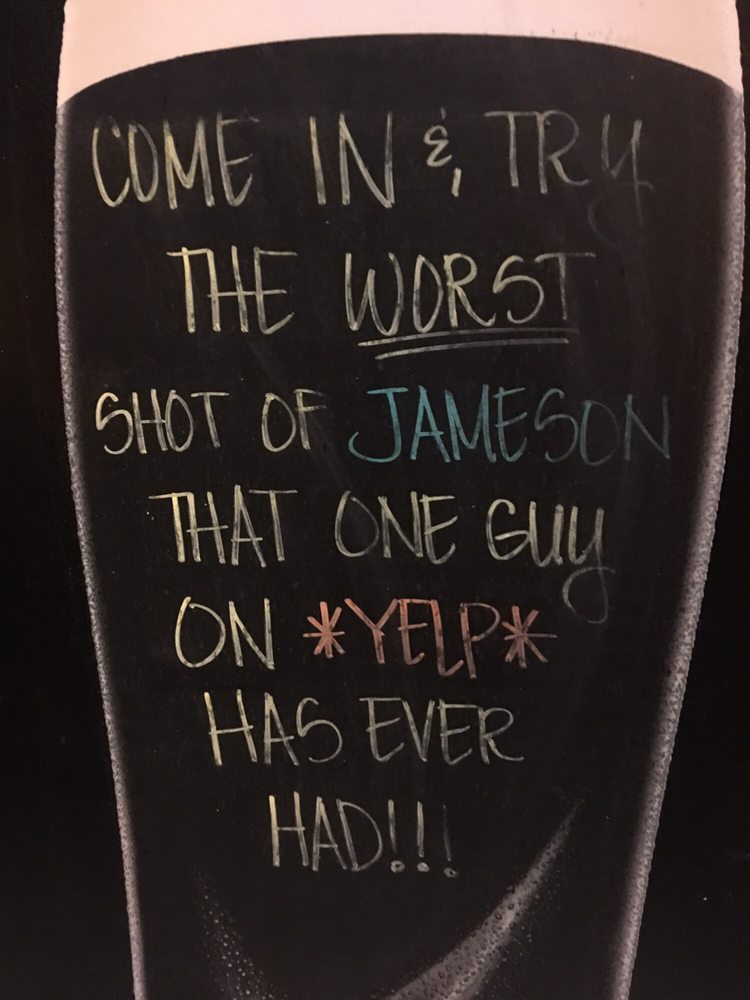 COME IN & TRY
THE WORST
SHOT OF JAMESON
THAT ONE GUY
ON *YELP*
HAS EVER
HAD!!!